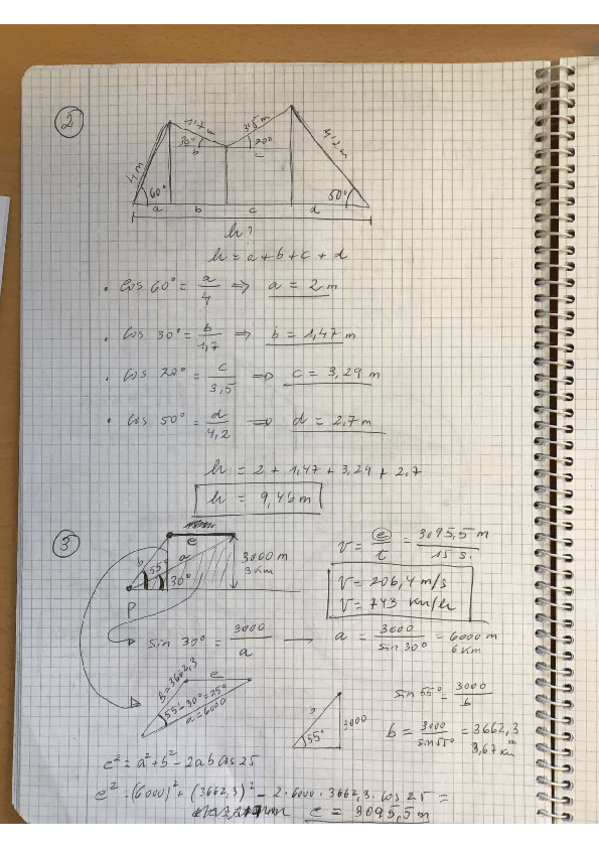 2
4 m
1,7 m
3,5 m
4,2 m
30°
b
20°
c
60°
50°
a b c d
h?
h = a + b + c + d
• Cos 60° = a/4 ⇒ a = 2 m
• Cos 30° = b/1,7 ⇒ b = 1,47 m
• Cos 20° = c/3,5 ⇒ c = 3,29 m
• Cos 50° = d/4,2 ⇒ d = 2,7 m
h = 2 + 1,47 + 3,29 + 2,7
h = 9,46 m
3
e
b
a
55°
30°
3000 m
3 Km
P
v = e/t = 3095,5 m / 15 s.
V = 206,4 m/s
V = 743 km/h
sin 30° = 3000/a → a = 3000/sin 30° = 6000 m
6 Km
b = 3662,3
e
55° - 30° = 25°
a = 6000
b
3000
55°
sin 55° = 3000/b
b = 3000/sin 55° = 3662,3 m
3,67 km
e² = a² + b² - 2ab cos 25
e² = (6000)² + (3662,3)² - 2·6000·3662,3·cos 25 =
e = 3095,5 m